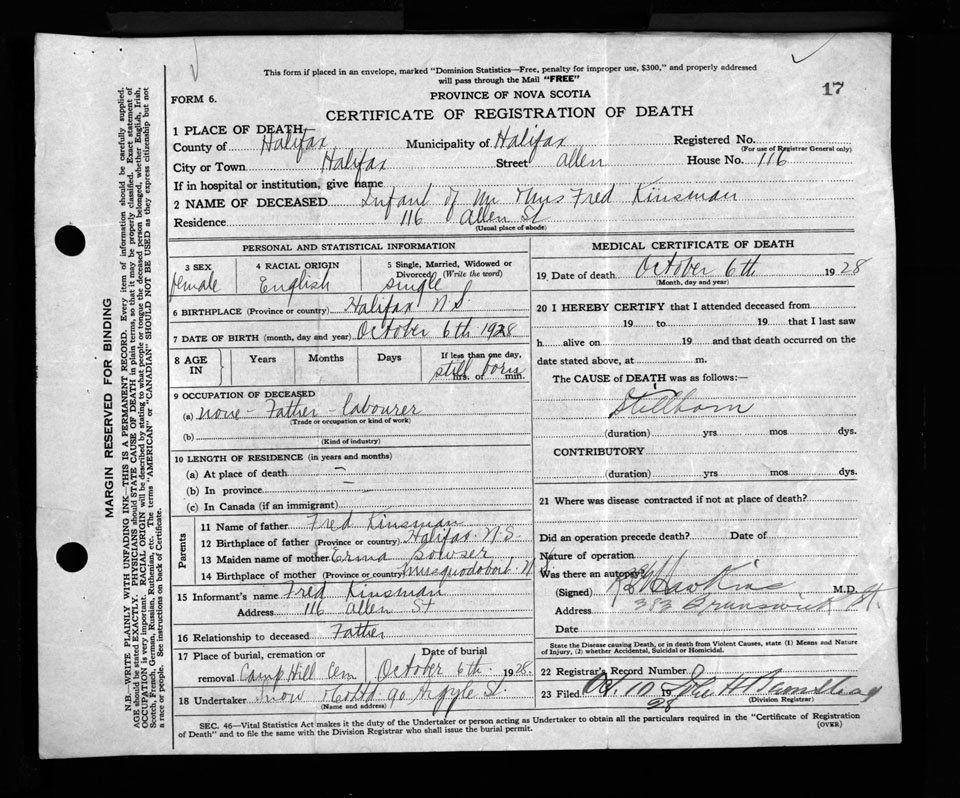 This form if placed in an envelope, marked "Dominion Statistics—Free, penalty for improper use, $300," and properly addressed
will pass through the Mail "FREE"
17
FORM 6.
PROVINCE OF NOVA SCOTIA
CERTIFICATE OF REGISTRATION OF DEATH
1 PLACE OF DEATH
County of Halifax Municipality of Halifax Registered No.
(For use of Registrar General only)
City or Town Halifax Street Allen House No. 116
If in hospital or institution, give name
2 NAME OF DECEASED Infant of Mr Mrs Fred Kinsman
Residence 116 Allen St
(Usual place of abode)
PERSONAL AND STATISTICAL INFORMATION
3 SEX 4 RACIAL ORIGIN 5 Single, Married, Widowed or
Divorced? (Write the word)
female English single
6 BIRTHPLACE (Province or country) Halifax N.S.
7 DATE OF BIRTH (month, day and year) October 6th 1928
8 AGE IN Years Months Days If less than one day,
still born
hrs. or min.
9 OCCUPATION OF DECEASED
(a) none - Father - labourer
(Trade or occupation or kind of work)
(b)
(Kind of industry)
10 LENGTH OF RESIDENCE (in years and months)
(a) At place of death —
(b) In province —
(c) In Canada (if an immigrant)
Parents
11 Name of father Fred Kinsman
12 Birthplace of father (Province or country) Halifax N.S.
13 Maiden name of mother Erma Bowser
14 Birthplace of mother (Province or country) Musquodoboit N.S.
15 Informant's name Fred Kinsman
Address 116 Allen St
16 Relationship to deceased Father
17 Place of burial, cremation or Date of burial
removal Camp Hill Cem October 6th 1928.
18 Undertaker Snow & Co Ltd 90 Argyle St.
(Name and address)
MEDICAL CERTIFICATE OF DEATH
19 Date of death October 6th 1928
(Month, day and year)
20 I HEREBY CERTIFY that I attended deceased from
19 to 19 that I last saw
h alive on 19 and that death occurred on the
date stated above, at m.
The CAUSE of DEATH was as follows:—
Stillborn
(duration) yrs mos dys.
CONTRIBUTORY
(duration) yrs mos dys.
21 Where was disease contracted if not at place of death?
Did an operation precede death? Date of
Nature of operation
Was there an autopsy?
(Signed) Hawkins M.D.
Address 383 Brunswick St.
Date
State the Disease causing Death, or in death from Violent Causes, state (1) Means and Nature
of Injury, (2) whether Accidental, Suicidal or Homicidal.
22 Registrar's Record Number
23 Filed Oct. 10 1928
(Division Registrar)
SEC. 46—Vital Statistics Act makes it the duty of the Undertaker or person acting as Undertaker to obtain all the particulars required in the "Certificate of Registration
of Death" and to file the same with the Division Registrar who shall issue the burial permit.
(OVER)
MARGIN RESERVED FOR BINDING
N.B.—WRITE PLAINLY WITH UNFADING INK—THIS IS A PERMANENT RECORD. Every item of information should be carefully supplied.
AGE should be stated EXACTLY. PHYSICIANS should STATE CAUSE OF DEATH in plain terms, so that it may be properly classified. Exact statement of
OCCUPATION is very important. RACIAL ORIGIN will be described by stating to what people or tongue the deceased person belonged, whether English, Irish,
Scotch, French, German, Russian, Ruthenian, etc. The terms "AMERICAN" or "CANADIAN" SHOULD NOT BE USED as they express citizenship but not
a race or people. See instructions on back of Certificate.